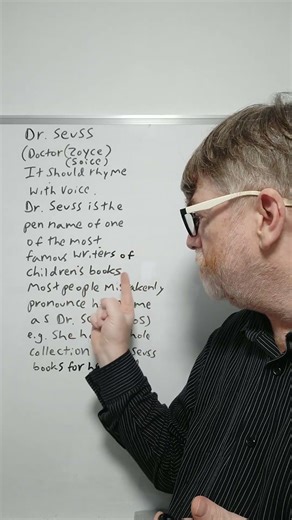 Dr. Seuss
(Doctor (Zoyce)
(Soice)
It should rhyme
with voice.
Dr. Seuss is the
pen name of one
of the most
famous writers of
children's books
most people mistakenly
pronounce
as Dr.
e.g. She
collection
books for